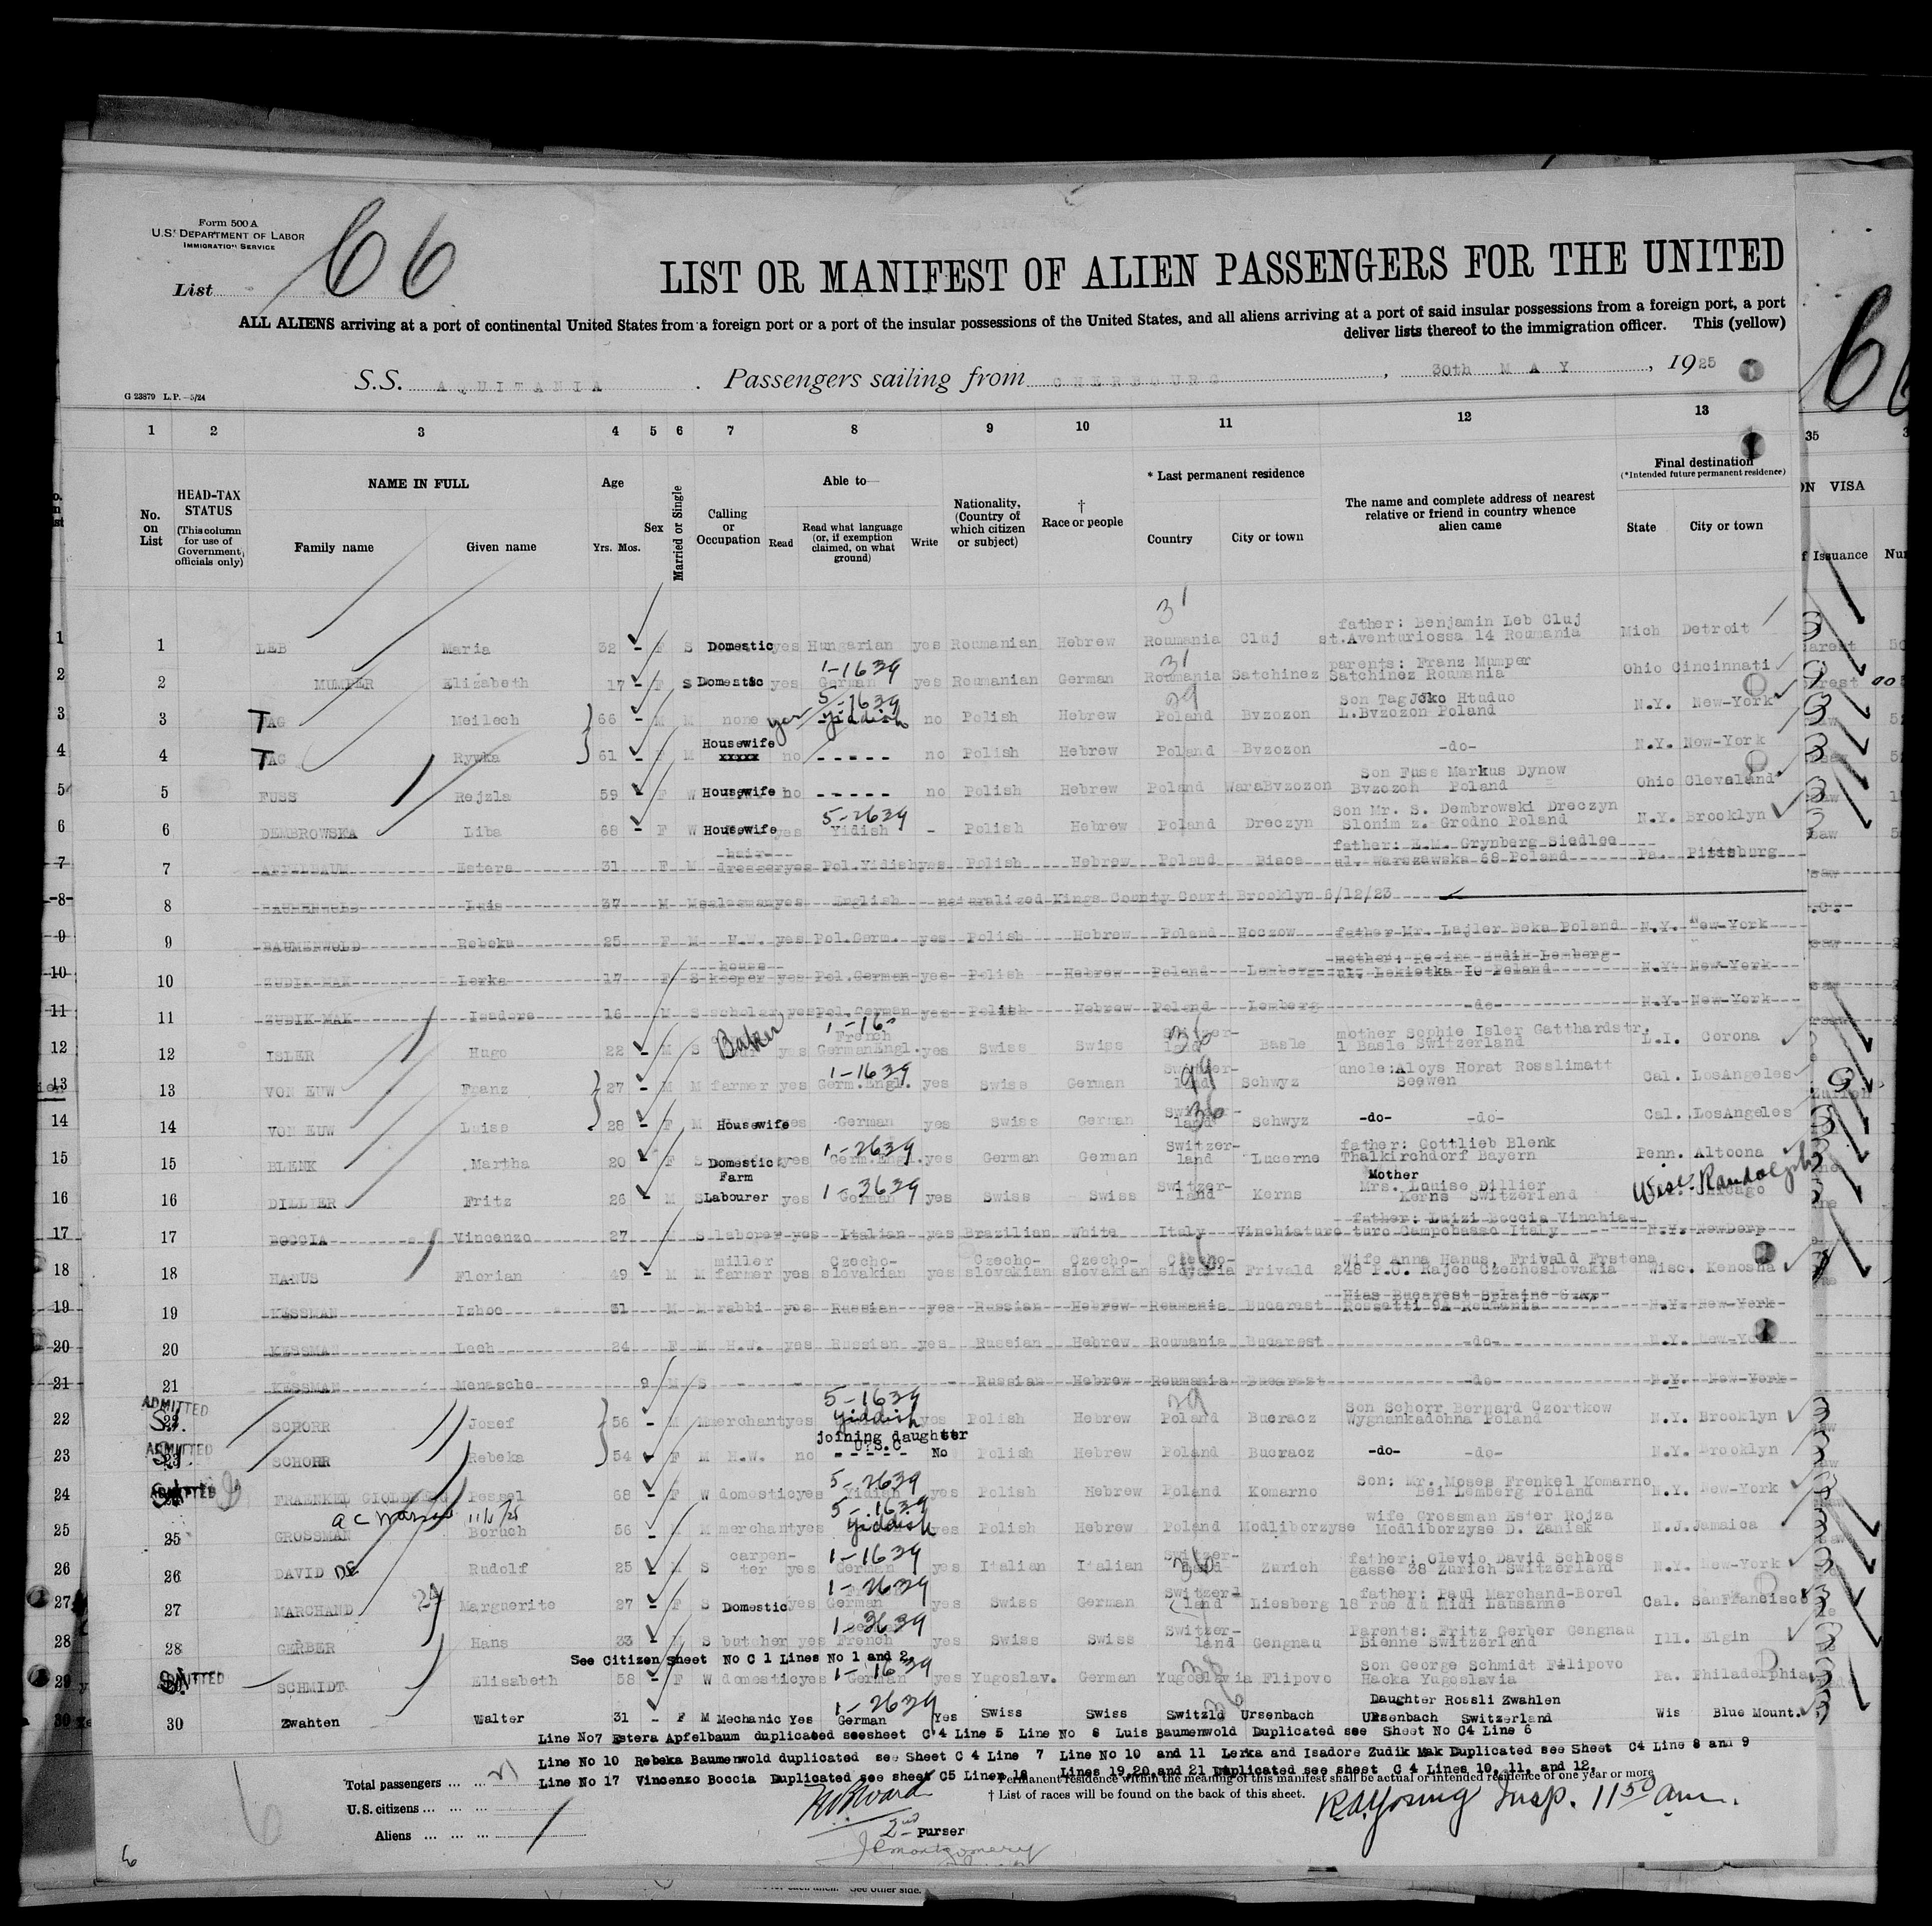 Form 500 A
U.S. DEPARTMENT OF LABOR
IMMIGRATION SERVICE
List 66
LIST OR MANIFEST OF ALIEN PASSENGERS FOR THE UNITED
ALL ALIENS arriving at a port of continental United States from a foreign port or a port of the insular possessions of the United States, and all aliens arriving at a port of said insular possessions from a foreign port, a port
deliver lists thereof to the immigration officer. This (yellow)
S.S. AQUITANIA . Passengers sailing from CHERBOURG , 30th MAY , 1925
G 23879 L.P.—5/24
1 2 3 4 5 6 7 8 9 10 11 12 13
No. on List
HEAD-TAX STATUS
(This column for use of Government officials only)
NAME IN FULL
Family name Given name
Age
Yrs. Mos.
Sex
Married or Single
Calling or Occupation
Able to—
Read
Read what language (or, if exemption claimed, on what ground)
Write
Nationality, (Country of which citizen or subject)
† Race or people
* Last permanent residence
Country City or town
The name and complete address of nearest relative or friend in country whence alien came
Final destination
(*Intended future permanent residence)
State City or town
31
1 LEB Maria 32 - F S Domestic yes Hungarian yes Roumanian Hebrew Roumania Cluj father: Benjamin Leb Cluj st.Aventuriossa 14 Roumania Mich Detroit
1-1639 31
2 MUMPER Elizabeth 17 - F S Domestic yes German yes Roumanian German Roumania Satchinez parents: Franz Mumper Satchinez Roumania Ohio Cincinnati
5-1639 29
3 TAG Meilech 66 - M M none yes Yiddish no Polish Hebrew Poland Bvzozon Son Tag Joko Htuduo L.Bvzozon Poland N.Y. New-York
4 TAG Rywka 61 - F M Housewife xxxxx no ----- no Polish Hebrew Poland Bvzozon -do- N.Y. New-York
5 FUSS Rejzla 59 - F W Housewife no ----- no Polish Hebrew Poland WaraBvzozon Son Fuss Markus Dynow Bvzozon Poland Ohio Cleveland
5-2639
6 DEMBROWSKA Liba 68 - F W Housewife yes Yidish - Polish Hebrew Poland Dreczyn Son Mr. S. Dembrowski Dreczyn Slonim z. Grodno Poland N.Y. Brooklyn
7 APFELBAUM Estera 31 F M hair-dresser yes Pol.Yidish yes Polish Hebrew Poland Biaca father: E.M. Grynberg Siedlce ul. Warszawska 68 Poland Pa. Pittsburg
8 BAUMENWOLD Luis 37 M M salesman yes English naturalized Kings County Court Brooklyn 6/12/23
9 BAUMENWOLD Rebeka 25 F M H.W. yes Pol.Germ. yes Polish Hebrew Poland Hoczow father Mr. Lajler Beka Poland N.Y. New-York
10 ZUDIK MAK Lerka 17 F S house-keeper yes Pol.German yes Polish Hebrew Poland Lemberg ul. Lekietka 10 Poland N.Y. New-York
11 ZUDIK MAK Isadore 16 M S scholar yes pol.German yes Polish Hebrew Poland Lemberg -do- N.Y. New-York
1-16-
12 ISLER Hugo 22 - M S Baker yes French German Engl. yes Swiss Swiss Switzer-land Basle mother Sophie Isler Gatthardstr. 1 Basle Switzerland L.I. Corona
1-1639
13 VON EUW Franz 27 - M M farmer yes Germ.Engl. yes Swiss German Switzer-land Schwyz uncle:Aloys Horat Rosslimatt Seewen Cal. LosAngeles
14 VON EUW Luise 28 - F M Housewife yes German yes Swiss German Switzer-land Schwyz -do- -do- Cal. LosAngeles
1-2639
15 BLENK Martha 20 - F S Domestic yes Germ.Engl. yes German German Switzer-land Lucerne father: Gottlieb Blenk Thalkirchdorf Bayern Penn. Altoona
1-3639
16 DILLIER Fritz 26 - M S Farm Labourer yes German yes Swiss Swiss Switzer-land Kerns Mother Mrs. Louise Dillier Kerns Switzerland Wisc. Randolph Chicago
17 BOCCIA Vincenzo 27 M S laborer yes Italian yes Brazilian White Italy Vinchiaturo father: Luizi Boccia Vinchiaturo Campobasso Italy N.Y. NewDorp
18 HANUS Florian 49 - M M miller farmer yes Czecho-slovakian yes Czecho-slovakian Czecho-slovakian Czecho-slovakia Frivald Wife Anna Hanus, Frivald Frstena 248 P.O. Rajec Czechoslovakia Wisc. Kenosha
19 KESSMAN Ishoc 31 M M rabbi yes Russian yes Russian Hebrew Roumania Bucarest Hias Bucarest Splaine Rossetti 9A Roumania N.Y. New-York
20 KESSMAN Lech 24 F M H.W. yes Russian yes Russian Hebrew Roumania Bucarest -do- N.Y. New-York
21 KESSMAN Menasche 9 M S - - - - Russian Hebrew Roumania Bucarest -do- N.Y. New-York
ADMITTED S.I. 5-1639 29
22 SCHORR Josef 56 - M M merchant yes Yiddish yes Polish Hebrew Poland Bucracz Son Schorr Bernard Czortkow Wygnankadohna Poland N.Y. Brooklyn
ADMITTED S.I. joining daughter U.S.C
23 SCHORR Rebeka 54 - F M H.W. no ----- No Polish Hebrew Poland Bucracz -do- -do- N.Y. Brooklyn
ADMITTED 5-2639
24 FRAENKEL GIOLD Pessel 68 - F W domestic yes Yidish yes Polish Hebrew Poland Komarno Son: Mr. Moses Frenkel Komarno Bei Lemberg Poland N.Y. New-York
5-1639
25 GROSSMAN Boruch 56 - M M merchant yes Yiddish yes Polish Hebrew Poland Modliborzyse wife Grossman Ester Rojza Modliborzyse D. Zanisk N.J. Jamaica
1-1639
26 DAVID DE Rudolf 25 - M S carpen-ter yes German yes Italian Italian Switzer-land Zurich father: Olevio David Schloss gasse 38 Zurich Switzerland N.Y. New-York
1-2639
27 MARCHAND 24 Marguerite 27 - F S Domestic yes German yes Swiss German Switzer-land Liesberg father: Paul Marchand-Borel 18 rue du Midi Lausanne Cal. SanFrancisco
1-3639
28 GERBER Hans 33 - M S butcher yes French yes Swiss Swiss Switzer-land Gengnau Parents: Fritz Gerber Gengnau Bienne Switzerland Ill. Elgin
See Citizen Sheet No C 1 Lines No 1 and 2
ADMITTED S.I. 1-1639 38
29 SCHMIDT Elisabeth 58 - F W domestic yes German yes Yugoslav. German Yugoslavia Flipovo Son George Schmidt Filipovo Hacka Yugoslavia Pa. Philadelphia
1-2639
30 Zwahten Walter 31 - F M Mechanic Yes German Yes Swiss Swiss Switzld Ursenbach Daughter Rossli Zwahlen Ursenbach Switzerland Wis Blue Mount.
Line No7 Estera Apfelbaum duplicated seesheet C 4 Line 5 Line No 8 Luis Baumenwold Duplicated see Sheet No C4 Line 6
Line No 10 Rebeka Baumenwold duplicated see Sheet C 4 Line 7 Line No 10 and 11 Lerka and Isadore Zudik Mak Duplicated see Sheet C4 Line 8 and 9
Line No 17 Vincenzo Boccia Duplicated see sheet C5 Line 18 Lines 19,20 and 21 Duplicated see sheet C 4 Lines 10, 11, and 12,
Total passengers ... ...
* Permanent residence within the meaning of this manifest shall be actual or intended residence of one year or more
U.S. citizens ... ... ...
† List of races will be found on the back of this sheet.
Aliens ... ... ...
2nd Purser
J C Montgomery
R.A. Young Insp. 11 50 am.